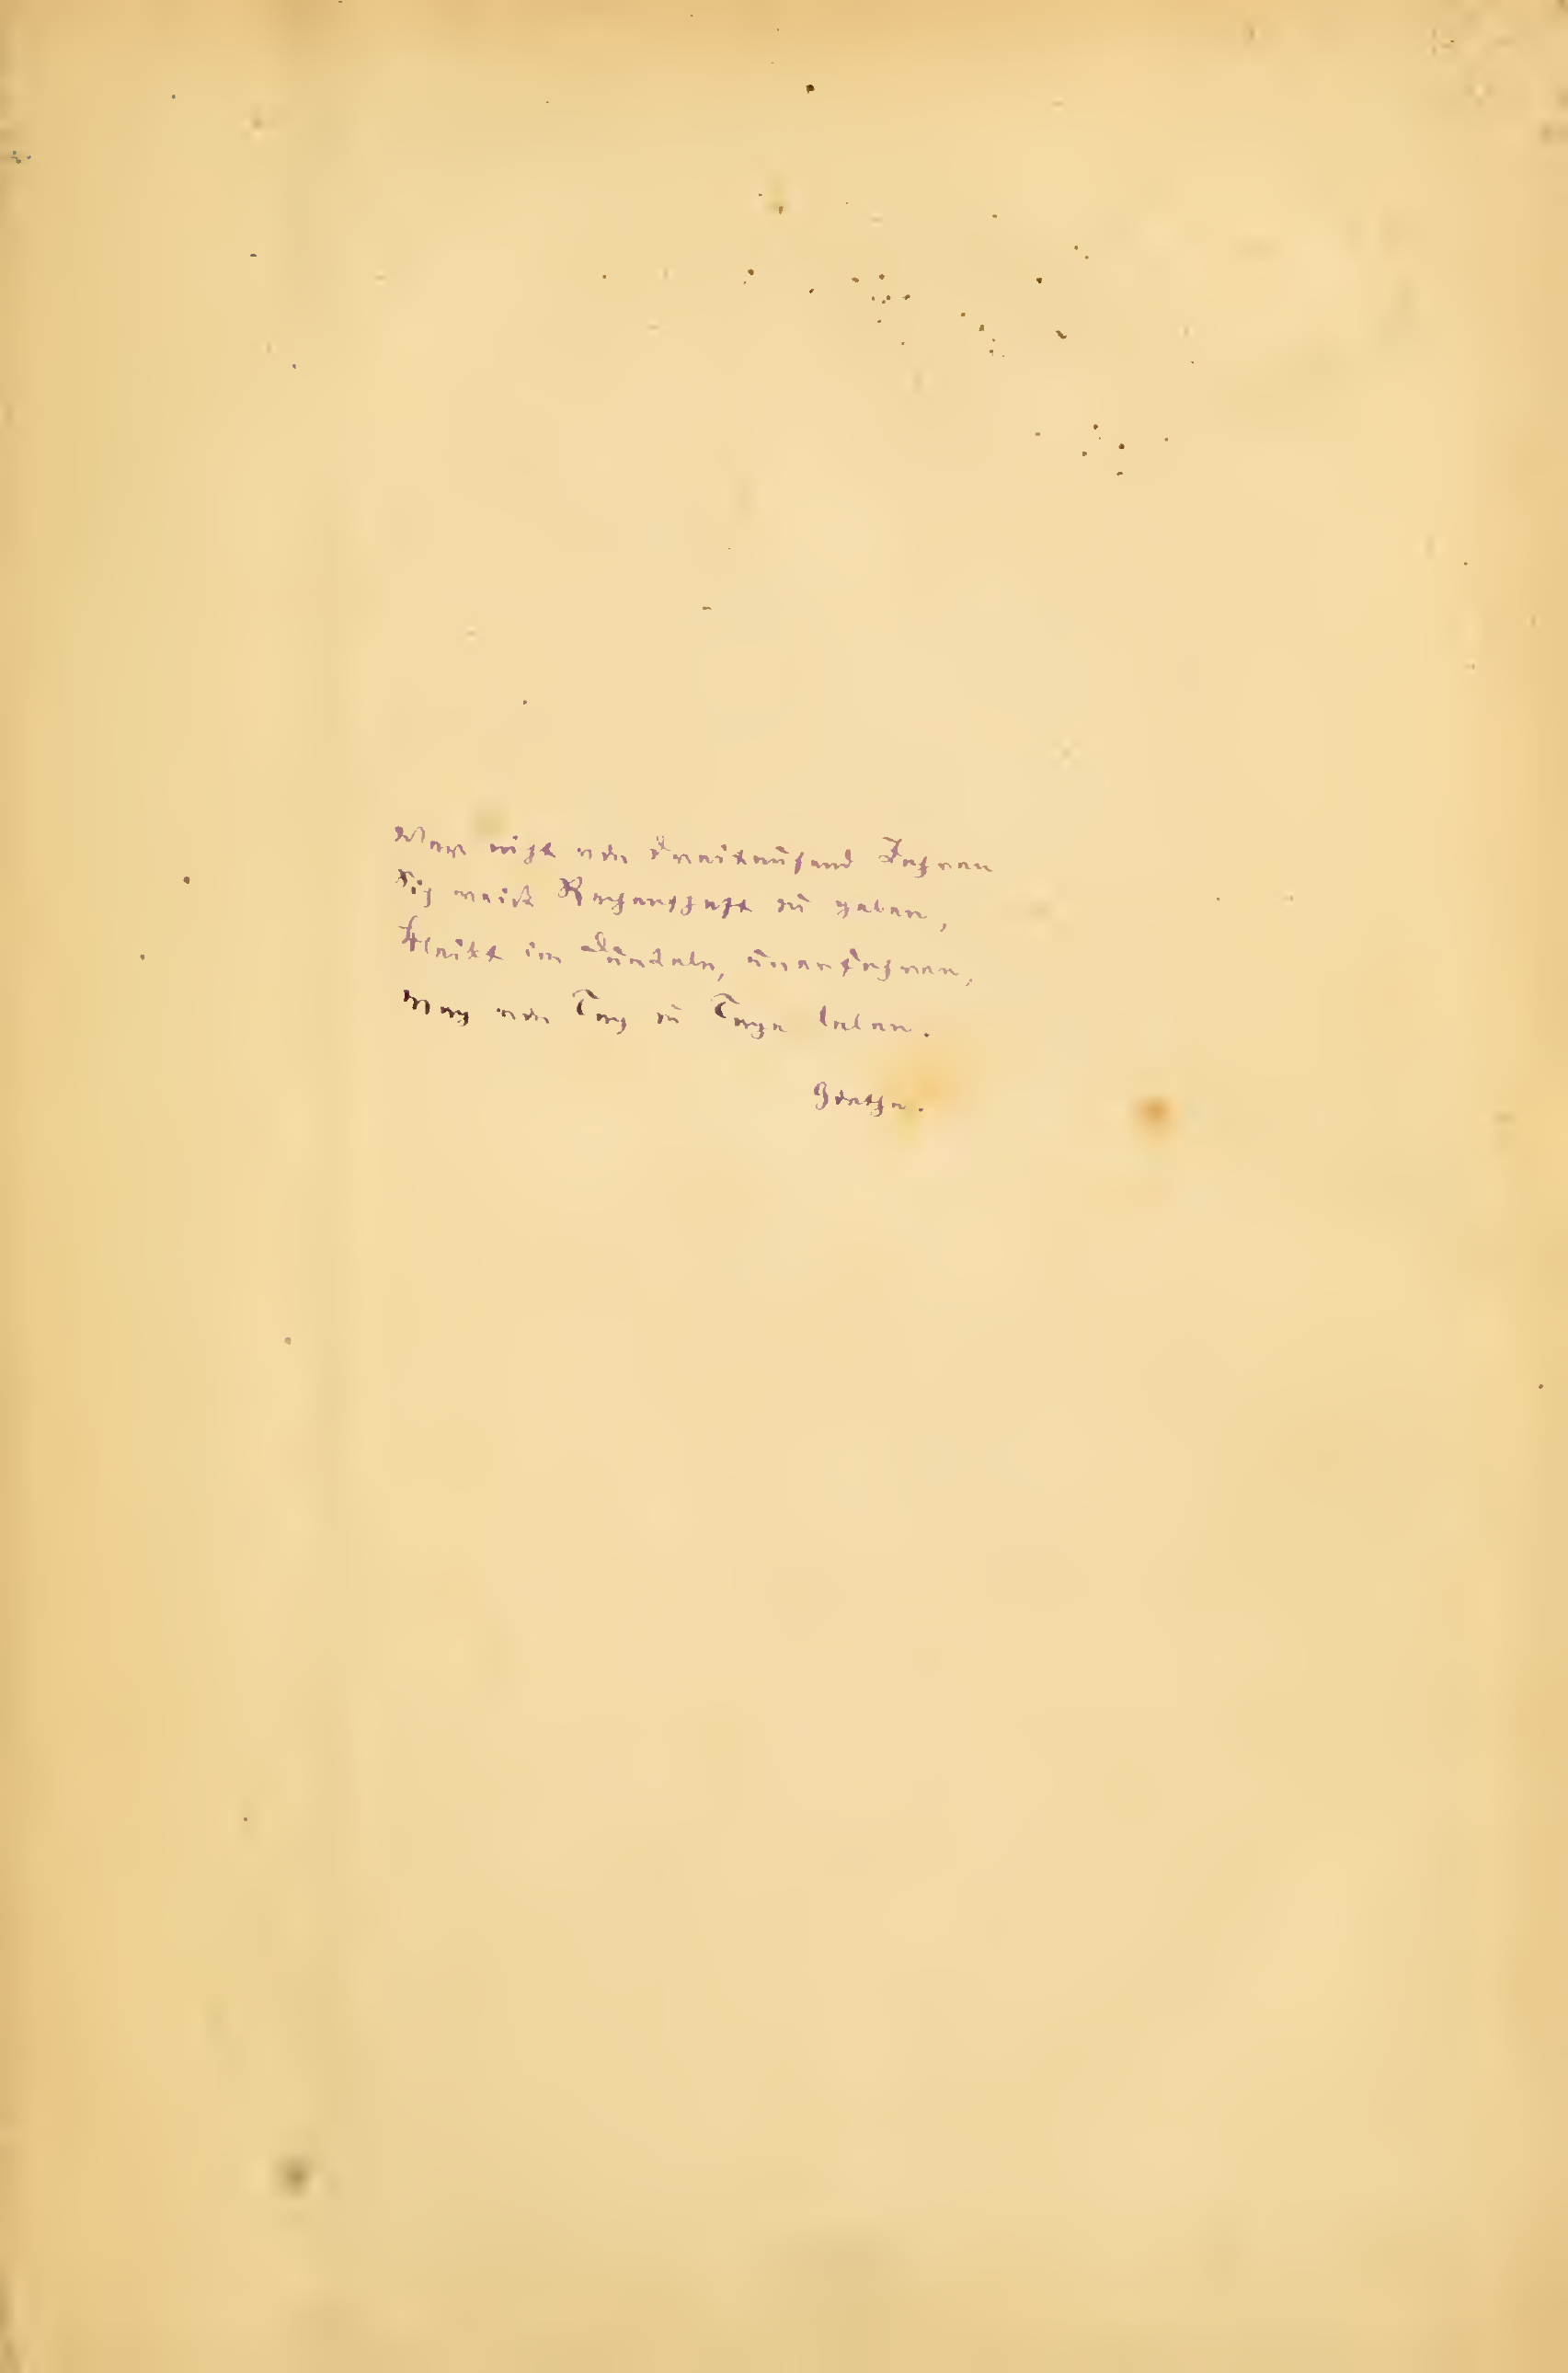 Wer nicht von Dreitausend Jahren
Sich weiß Rechenschaft zu geben,
Bleibt im Dunkeln, unerfahren,
Mag von Tag zu Tage leben.
Goethe.